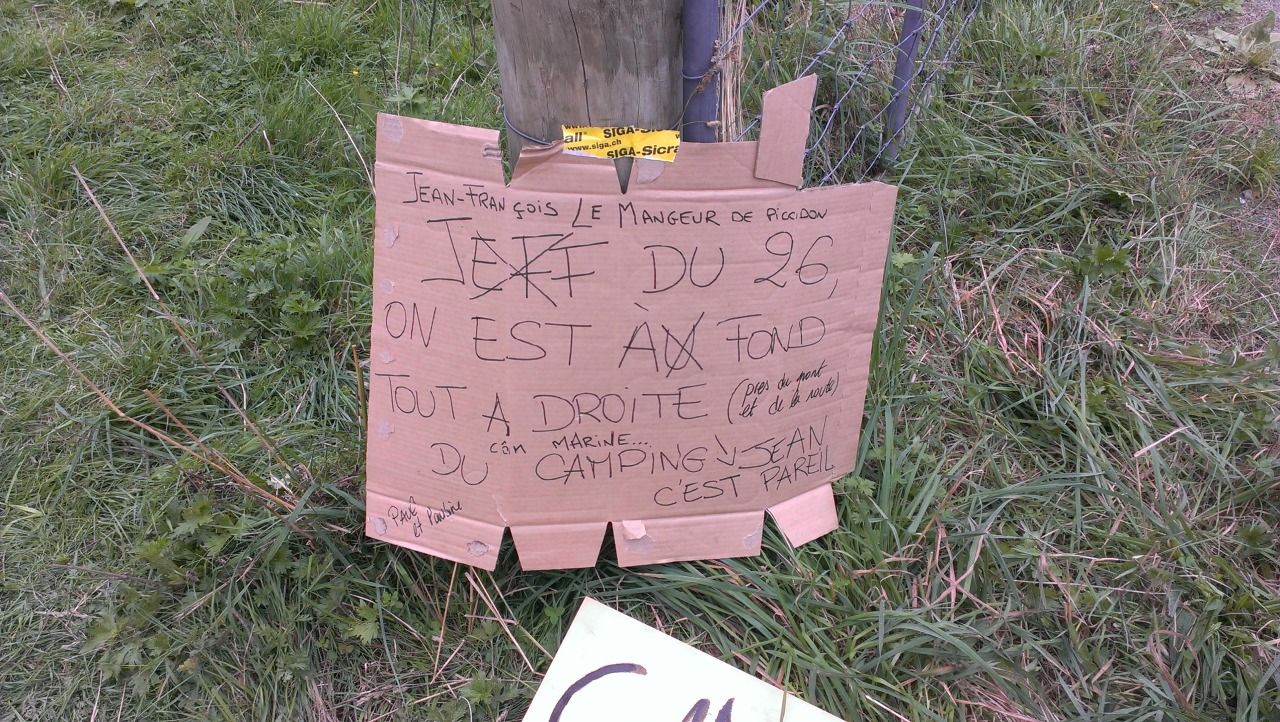 all® SIGA-Sicra
www.siga.ch
SIGA-Sicra
JEAN-FRANçOIS LE MANGEUR DE PiCCIDON
JEFF DU 26,
ON EST À FOND
TOUT A DROITE (près du pont
et de la route)
cân MARINE...
DU CAMPING JEAN
C'EST PAREIL
PAUL
et Pauline